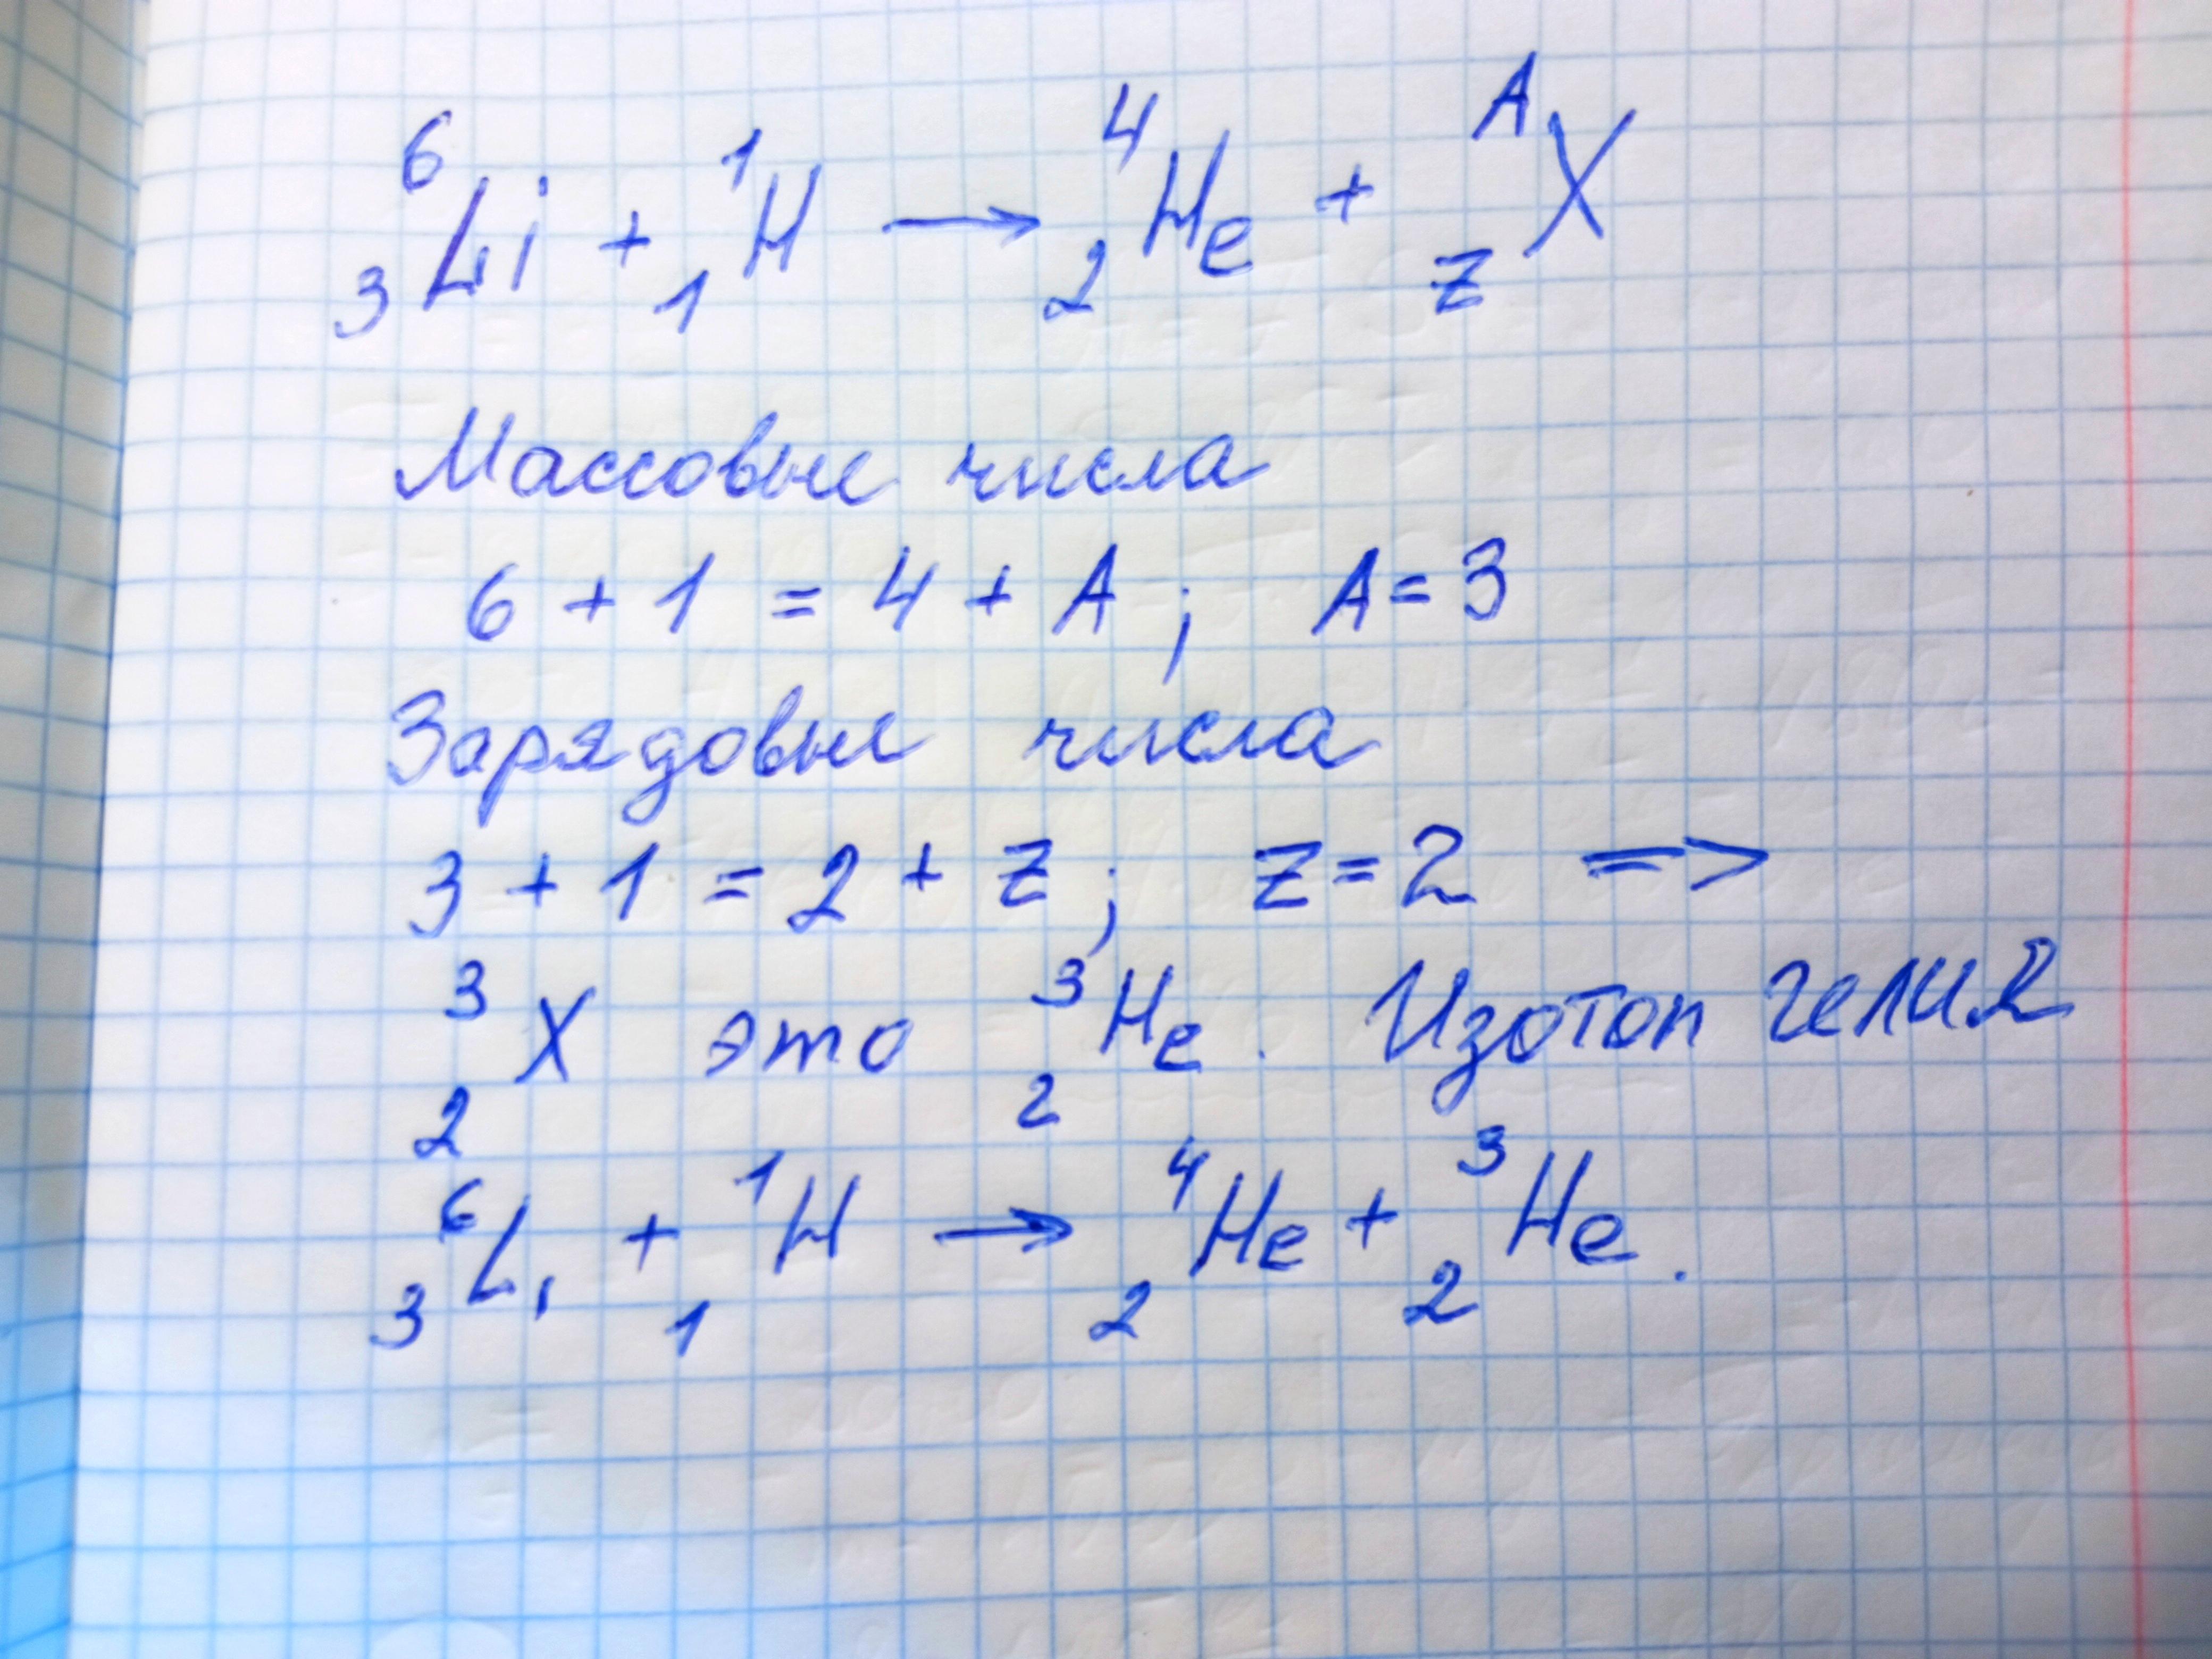 ⁶₃Li + ¹₁H → ⁴₂He + ᴬ_zX
Массовые числа
6 + 1 = 4 + A ; A = 3
Зарядовые числа
3 + 1 = 2 + z ; z = 2 =>
³₂X это ³₂He. Изотоп гелия
⁶₃Li + ¹₁H → ⁴₂He + ³₂He.